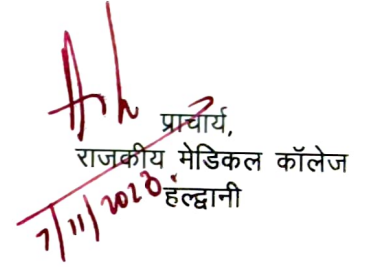 प्राचार्य,
राजकीय मेडिकल कॉलेज
हल्द्वानी
7/11/2023.